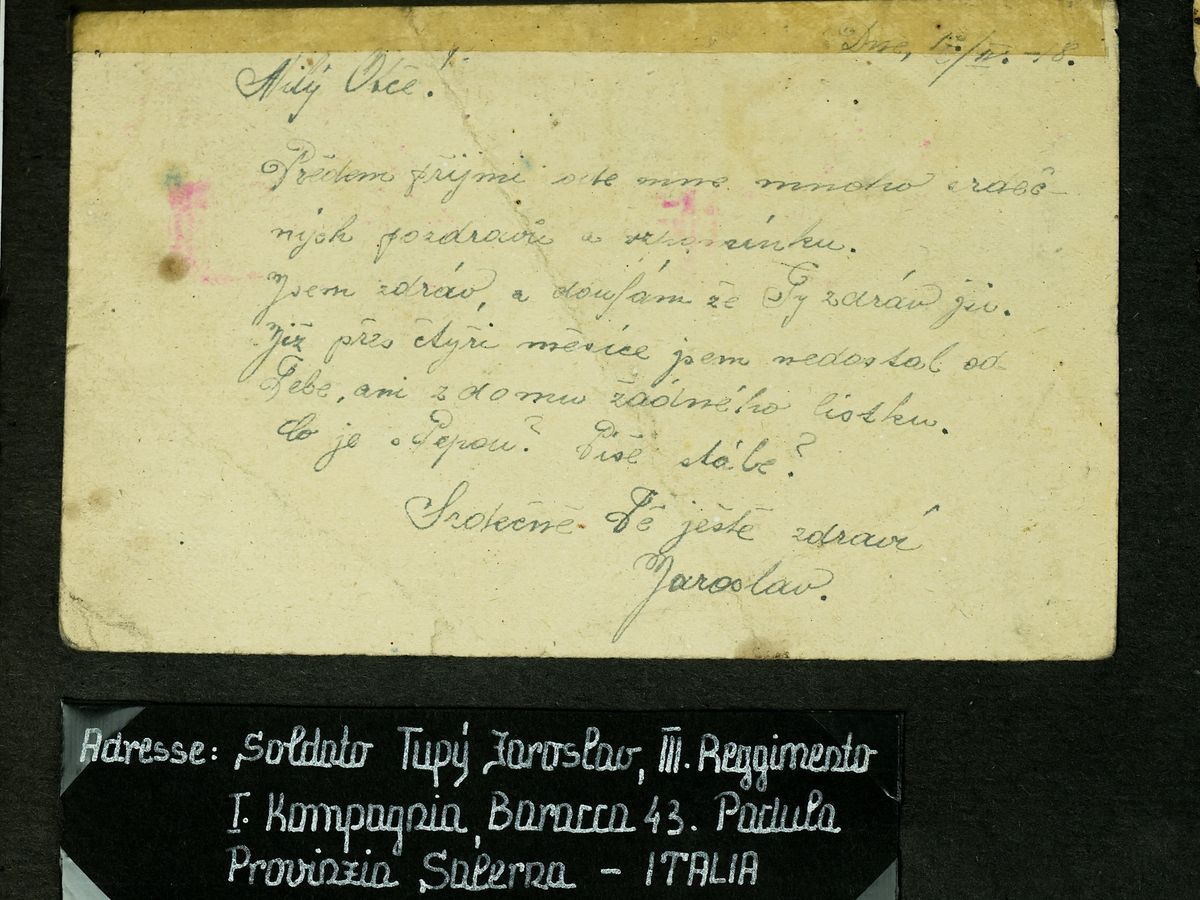 Dne, 12/IV. -18.
Milý Otče!
Předem přijmi ode mne mnoho srdeč-
ných pozdravů a vzpomínku.
Jsem zdráv, a doufám že Ty zdráv jsi.
Již přes čtyři měsíce jsem nedostal od
Tebe, ani z domu žádného lístku.
Co je s Pepou? Píše stále?
Srdečně Tě ještě zdraví
Jaroslav.
Adresse: Soldato Tupý Jaroslav, III. Reggimento
I. Kompagnia, Baracca 43. Padula
Provinzia Salerna - ITALIA